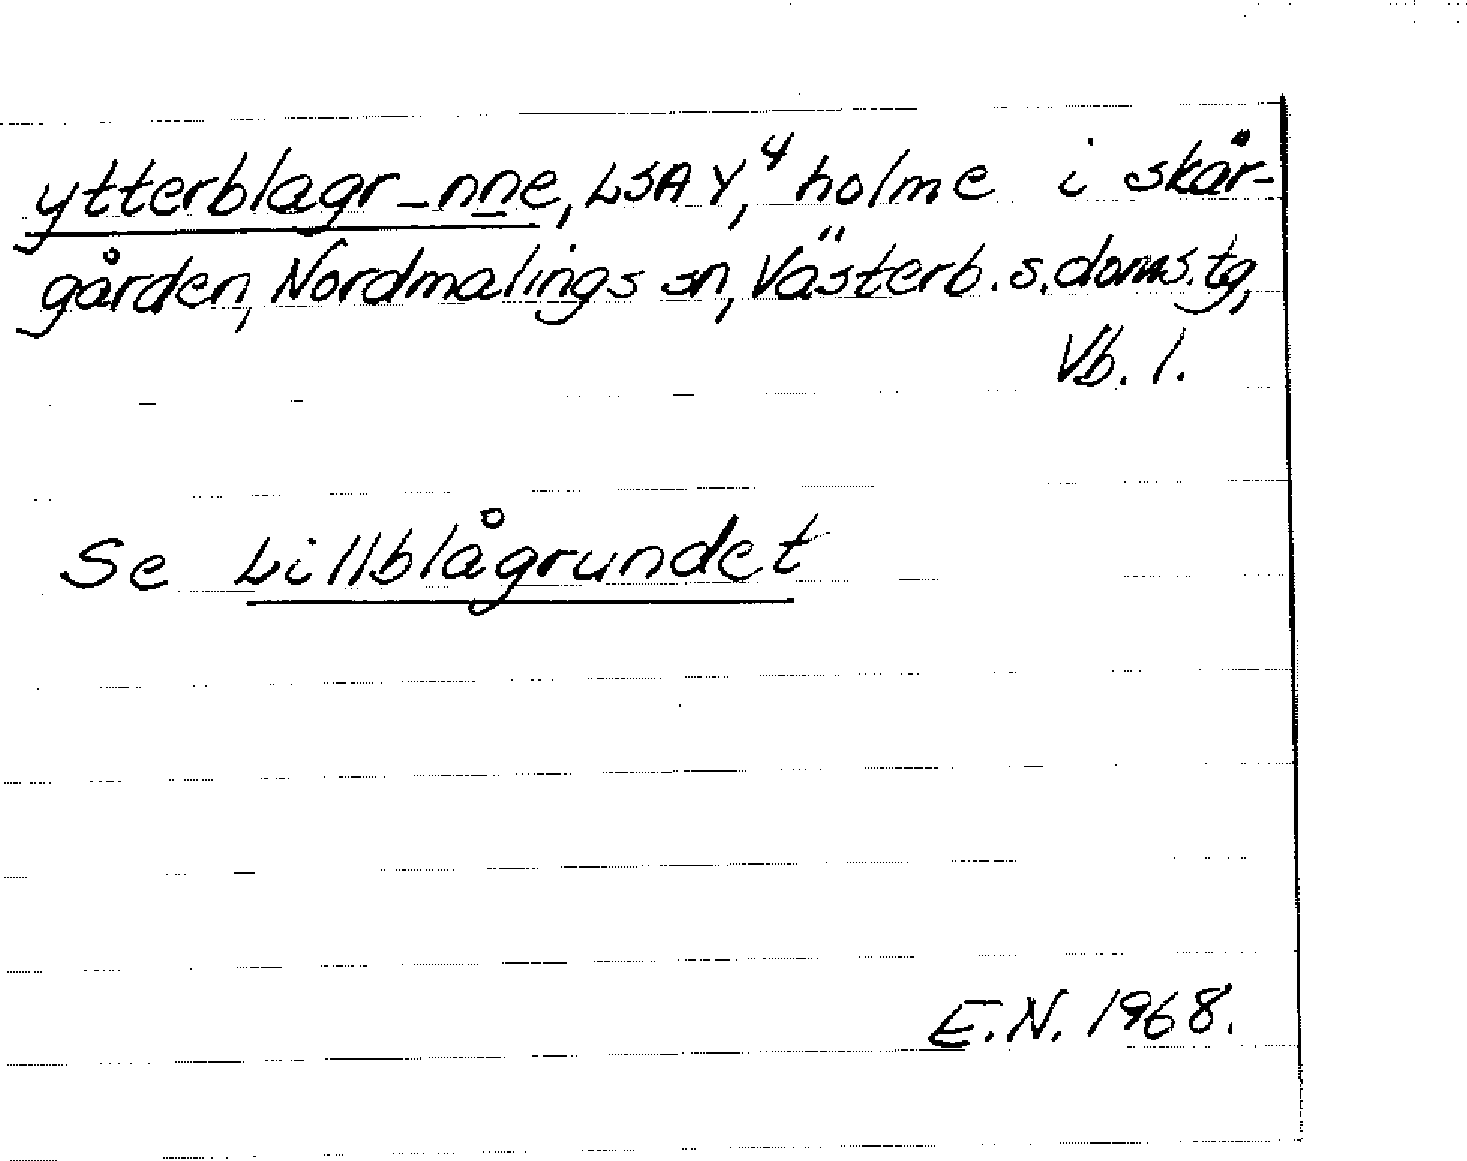 ytterblagr_nne, LSA Y⁴, holme i skär-
gården, Nordmalings sn, Västerb. s. doms. tg,
Vb. l.
Se Lillblågrundet
E.N. 1968.